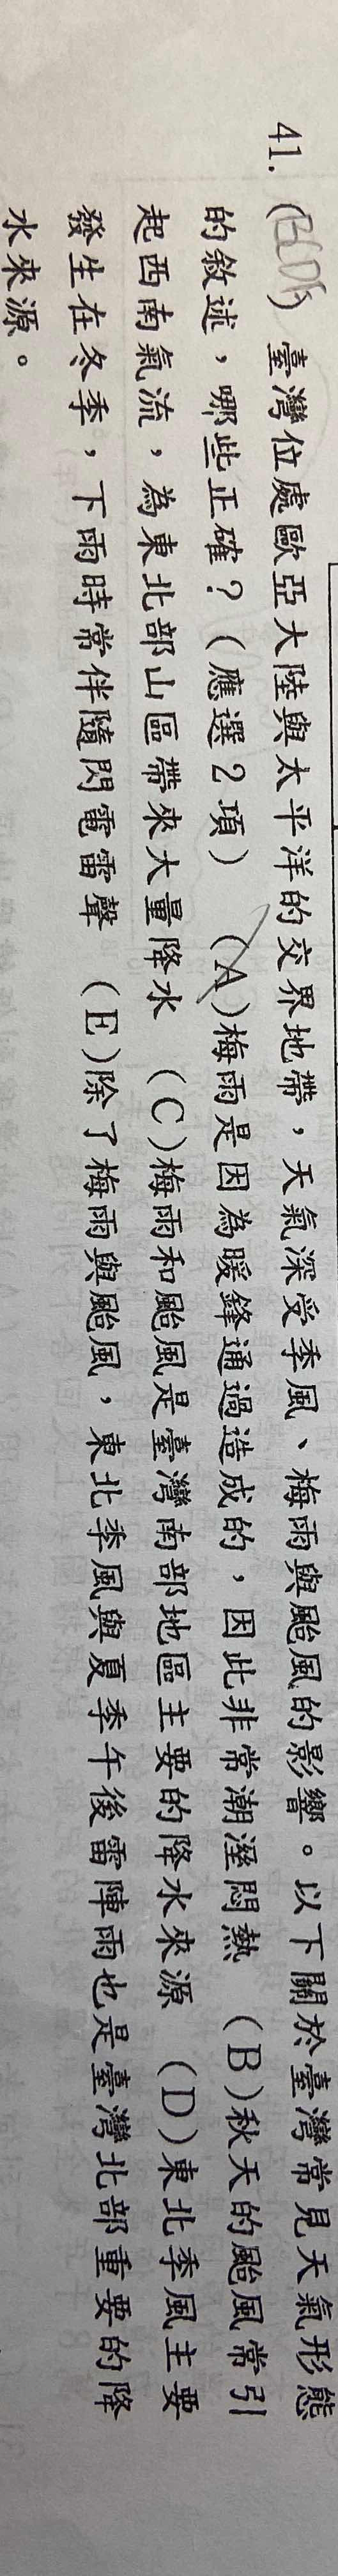 41. ( ) 臺灣位處歐亞大陸與太平洋的交界地帶，天氣深受季風、梅雨與颱風的影響。以下關於臺灣常見天氣形態
的敘述，哪些正確？（應選2項） (A)梅雨是因為暖鋒通過造成的，因此非常潮溼悶熱 (B)秋天的颱風常引
起西南氣流，為東北部山區帶來大量降水 (C)梅雨和颱風是臺灣南部地區主要的降水來源 (D)東北季風主要
發生在冬季，下雨時常伴隨閃電雷聲 (E)除了梅雨與颱風，東北季風與夏季午後雷陣雨也是臺灣北部重要的降
水來源。